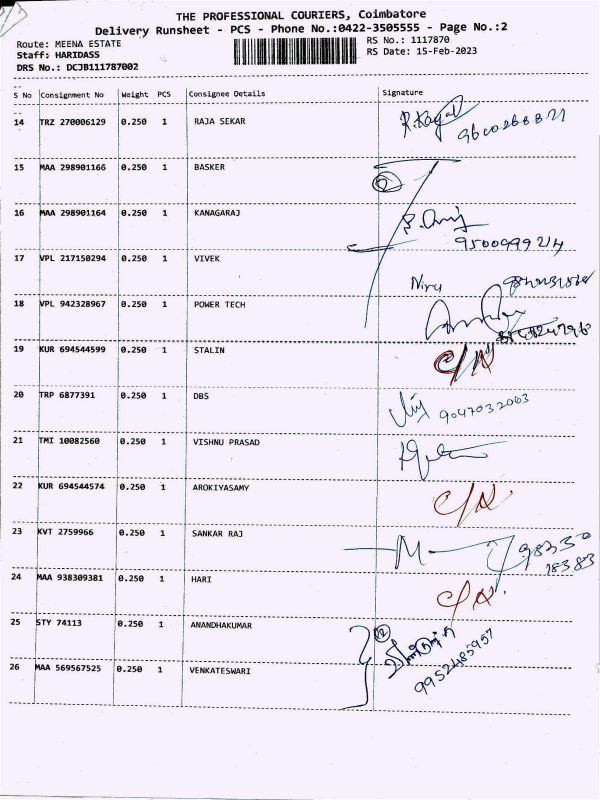 THE PROFESSIONAL COURIERS, Coimbatore
Delivery Runsheet - PCS - Phone No.:0422-3505555 - Page No.:2
Route: MEENA ESTATE RS No.: 1117870
Staff: HARIDASS RS Date: 15-Feb-2023
DRS No.: DCJB111787002
S No Consignment No Weight PCS Consignee Details Signature
14 TRZ 270006129 0.250 1 RAJA SEKAR
15 MAA 298901166 0.250 1 BASKER
16 MAA 298901164 0.250 1 KANAGARAJ
17 VPL 217150294 0.250 1 VIVEK Niru
18 VPL 942328967 0.250 1 POWER TECH
19 KUR 694544599 0.250 1 STALIN
20 TRP 6877391 0.250 1 DBS 9047032063
21 TMI 10082560 0.250 1 VISHNU PRASAD
22 KUR 694544574 0.250 1 AROKIYASAMY
23 KVT 2759966 0.250 1 SANKAR RAJ M 98330
18383
24 MAA 938309381 0.250 1 HARI
25 STY 74113 0.250 1 ANANDHAKUMAR
26 MAA 569567525 0.250 1 VENKATESWARI 9952485957